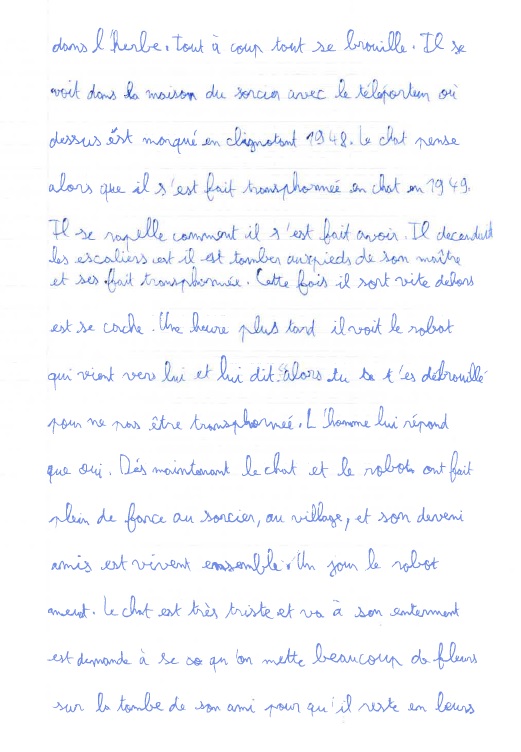 dans l'herbe. Tout à coup tout se brouille. Il se
voit dans la maison du sorcier avec le téléporteur où
dessus est marqué en clignotant 1948. Le chat pense
alors que il s'est fait transphormée en chat en 1949.
Il se rapelle comment il s'est fait avoir. Il decendait
les escaliers est il est tomber aux pieds de son maître
et ses fait transphormée. Cette fois il sort vite dehors
est se cache. Une heure plus tard il voit le robot
qui vient vers lui et lui dit: "alors tu te t'es débrouillé
pour ne pas être transphormée. L'homme lui répond
que oui. Dès maintenant le chat et le robot ont fait
plein de farce au sorcier, au village, et son deveni
amis est vivent ensemble. Un jour le robot
meurt. Le chat est très triste et va à son enterment
est demande à se ce qu'on mette beaucoup de fleurs
sur la tombe de son ami pour qu'il reste en leurs